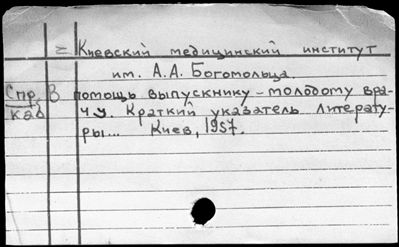 = Киевский медицинский институт
им. А.А. Богомольца.
Спр. В помощь выпускнику – молодому вра-
каб чу. Краткий указатель литерату-
ры... Киев, 1957.